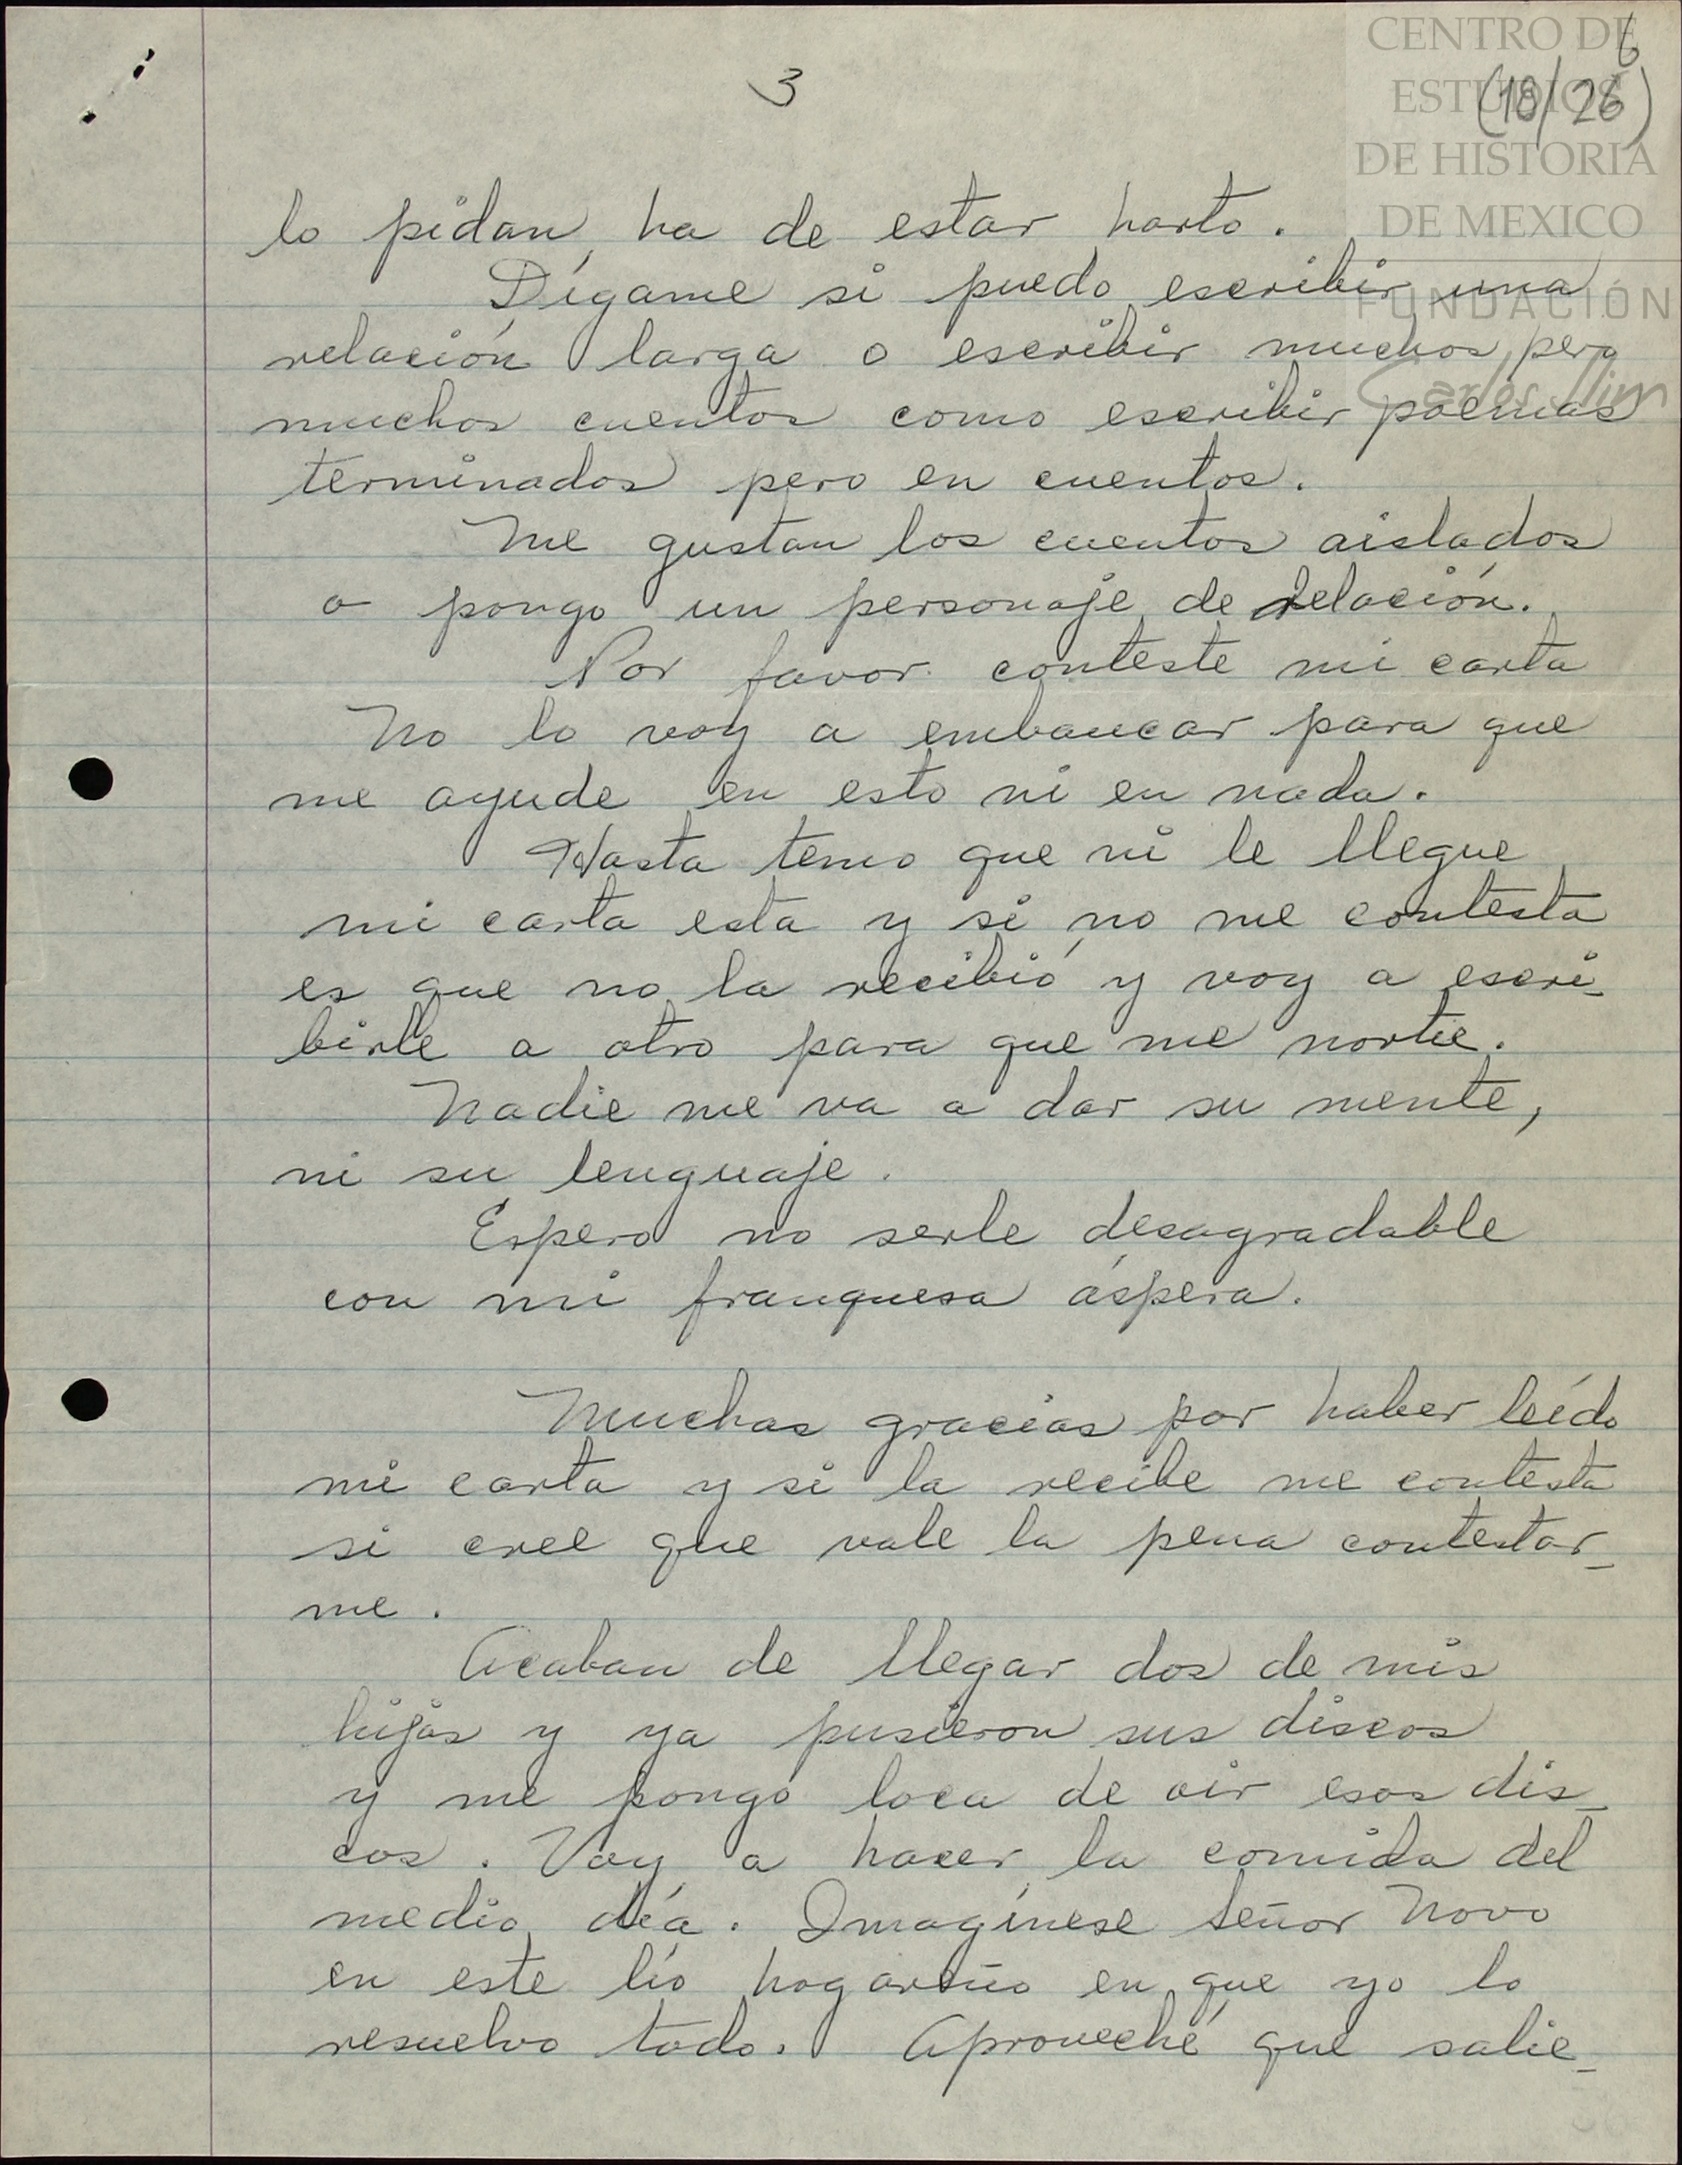 CENTRO DE
ESTUDIOS
DE HISTORIA
DE MEXICO
FUNDACIÓN
Carlos Slim
6
(18/26)
3
lo pidan, ha de estar harto.
Dígame si puedo escribir una
relación larga o escribir muchos, pero
muchos cuentos como escribir poemas
terminados pero en cuentos.
Me gustan los cuentos aislados
o pongo un personaje de relación.
Por favor conteste mi carta
No lo voy a embaucar para que
me ayude en esto ni en nada.
Hasta temo que ni le llegue
mi carta esta y si no me contesta
es que no la recibió y voy a escri-
birle a otro para que me nortie.
Nadie me va a dar su mente,
ni su lenguaje.
Espero no serle desagradable
con mi franquesa áspera.
Muchas gracias por haber leído
mi carta y si la recibe me contesta
si cree que vale la pena contestar-
me.
Acaban de llegar dos de mis
hijas y ya pusieron sus discos
y me pongo loca de oir esos dis-
cos. Voy a hacer la comida del
medio día. Imagínese señor Novo
en este lío hogareño en que yo lo
resuelvo todo. Aproveché que salie-